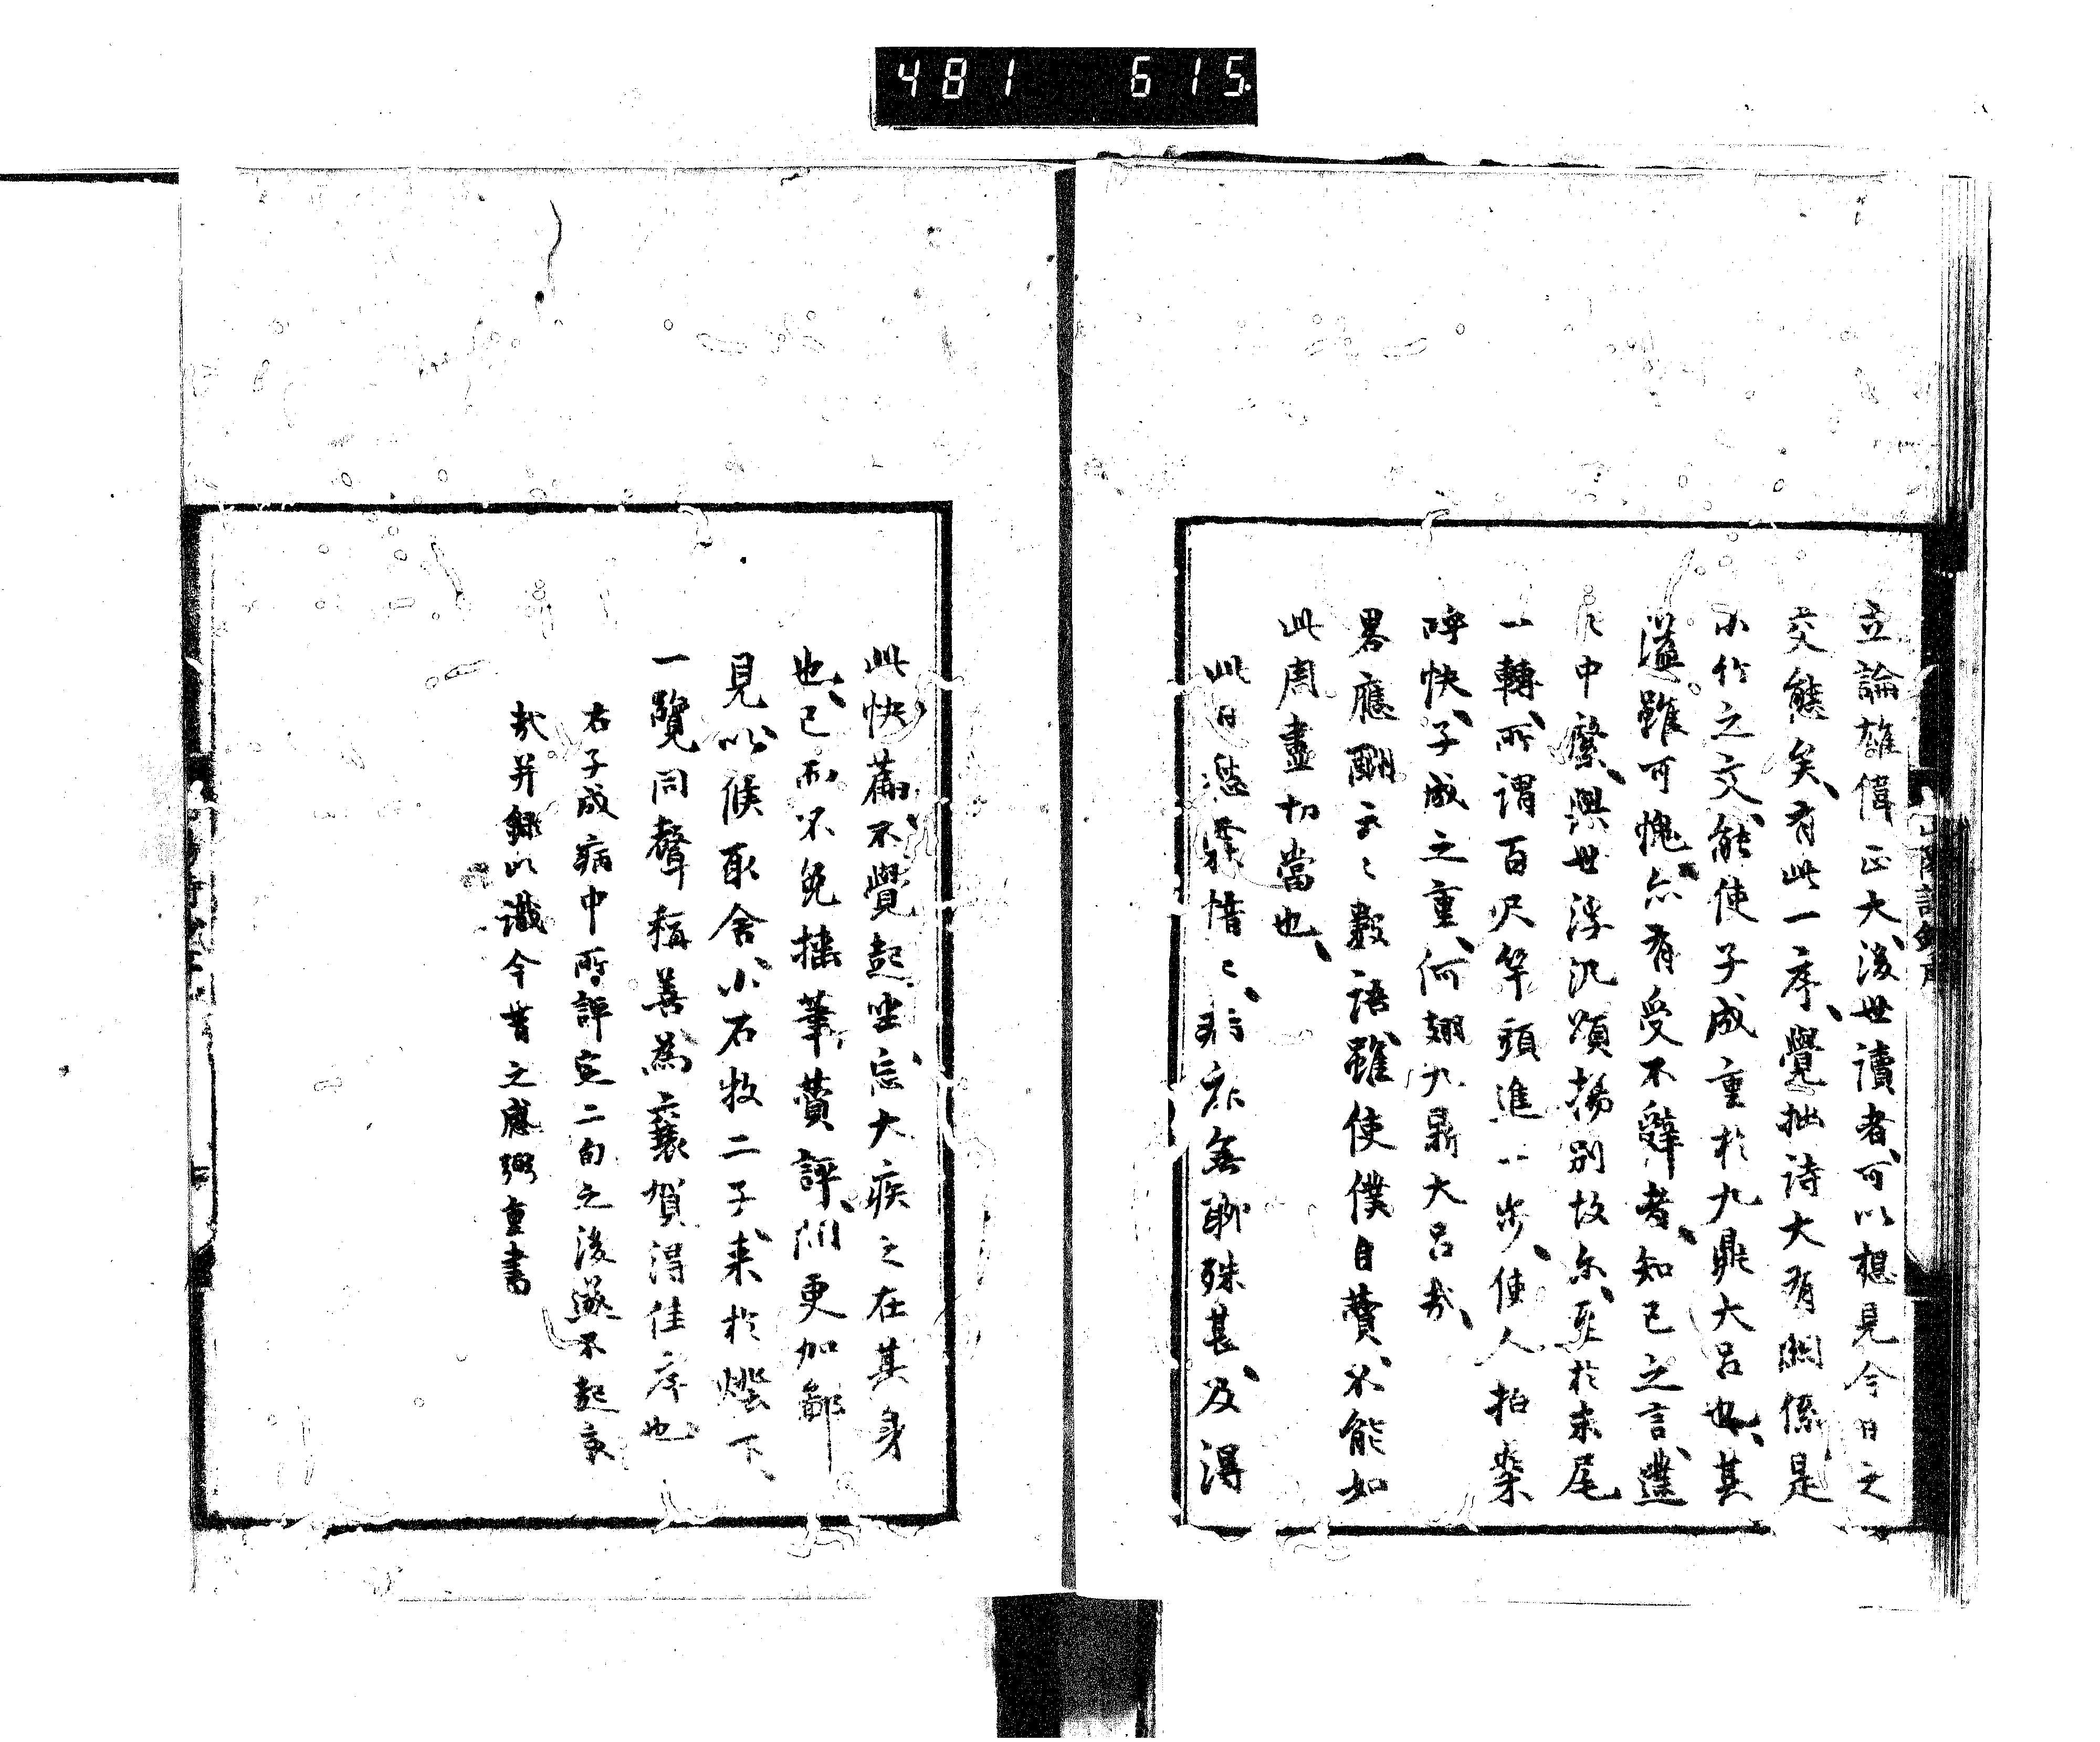 481 615
山陽詩鈔序
立論雄偉正大、後世讀者、可以想見今日之
交態矣、有此一序、覺拙詩大有關係、是
小竹之文、能使子成重於九鼎大呂也、其
溢。雖可愧、亦有受不辭者、知己之言、蘧
中縻、與世浮沉頌揚別故尔、至於末尾
一轉、所謂百尺竿頭進一步、使人拍案
呼快、子成之重、何翅九鼎大呂哉、
畧應酬云〻數語、雖使僕自贊、不能如
此周盡切當也、
此日憊惛〻、病亦無聊殊甚、及得
此快篇、不覺起坐、忘大疾之在其身
也、已而不免搖筆贊評、間更加
見、以候取舍、小石牧二子来於燈下、
一覽同聲稱善為襄賀得佳序也
右子成病中所評定二旬之後遂不起哀
哉并錄以識今昔之感弼重書